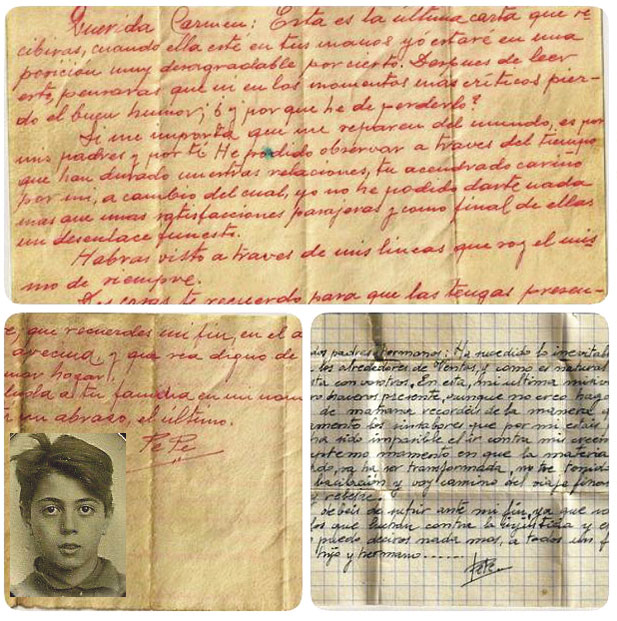 Querida Carmen: Esta es la última carta que re-
cibiras, cuando ella esté en tus manos yó estaré en una
posición muy desagradable por cierto. Despues de leer
esto, pensaras que ni en los momentos más criticos pier-
do el buen humor; ó ¿ y por que he de perderlo?
Si me importa que me separen del mundo, es por
mis padres y por tí. He podido observar a traves del tiempo
que han durado nuestras relaciones, tu acendrado cariño
por mi, a cambio del cual, yo no he podido darte nada
mas que unas satisfacciones pasajeras y como final de ellas
un desenlace funesto.
Habras visto a traves de mis lineas que soy el mis
mo de siempre.
Dos cosas te recuerdo para que las tengas presen-
que recuerdes mi fin, en el a
avecina, y que sea digno de
hogar!
a tu familia en mi nom
un abrazo, el último.
PePe
padres hermanos: Ha sucedido lo inevitabl
los alrededores de Ventas, y como es natural
con vosotros. En esta, mi ultima misiva
haceros presente, aunque no creo haga
de mañana recordéis de la manera q
los sinsabores que por mi estais
ha sido imposible el ir contra mis creen
momento en que la materia
ha ser transformada, no he tenido
y voy camino del viaje final
y rebelde.
debéis de sufrir ante mi fin, ya que
los que luchan contra la injusticia y
puedo deciros nada mas, a todos un f
hijo y hermano......
PePe